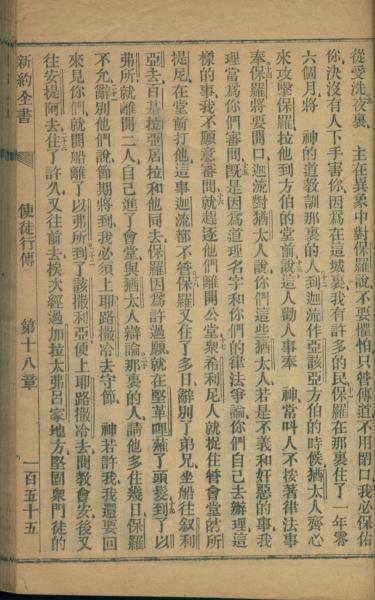 從受洗夜裏、主在異象中對保羅說、不要懼怕、只管傳道、不用閉口、我必保佑
你、決沒有人下手害你、因爲在這城裏、我有許多的民、保羅在那裏住了一年零
六個月、將 神的道教訓那裏的人、到迦流作亞該亞方伯的時候、猶太人齊心
來攻擊保羅、拉他到方伯的堂前、說、這人勸人事奉 神、當叫人不按著律法事
奉、保羅將要開口、迦流對猶太人說、你們這些猶太人、若是不義和奸惡的事、我
理當爲你們審問、旣是因爲道理名字和你們的律法爭論、你們自己去辦理、這
樣的事我不願意審問、就趕逐他們離開公堂、衆希利尼人就捉住管會堂的所
提尼、在堂前打他、這事迦流都不管、保羅又住了多日、辭別了弟兄、坐船往叙利
亞去、百基拉亞居拉和他同去、保羅因爲許過願、就在堅革哩薙了頭髮、到了以
弗所、就離開二人、自己進了會堂、與猶太人辯論、那裏的人、請他多住幾日、保羅
不允、辭別他們說、節期將到、我必須上耶路撒冷去守節、 神若許我、我還要回
來見你們、就開船離了以弗所、到了該撒利亞、便上耶路撒冷去、問敎會安、後又
往安提阿去、住了許久、又往前去、挨次經過加拉太弗呂家地方、堅固衆門徒的
新約全書 使徒行傳 第十八章 一百五十五